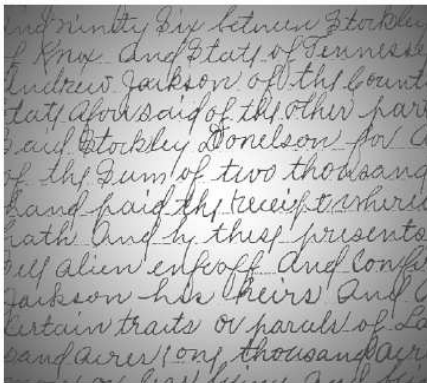 and ninity Six between Stockley
of Knox and State of Tennesse
Andrew Jackson of the Count
State aforesaid of the other par
Said Stockley Donelson for
of the Sum of two thousand
hand paid the receipt wher
hath and by these presents
sell alien enfeoff and Conf
Jackson his heirs and
Certain traits or parcels of La
sand acres one thousand acr